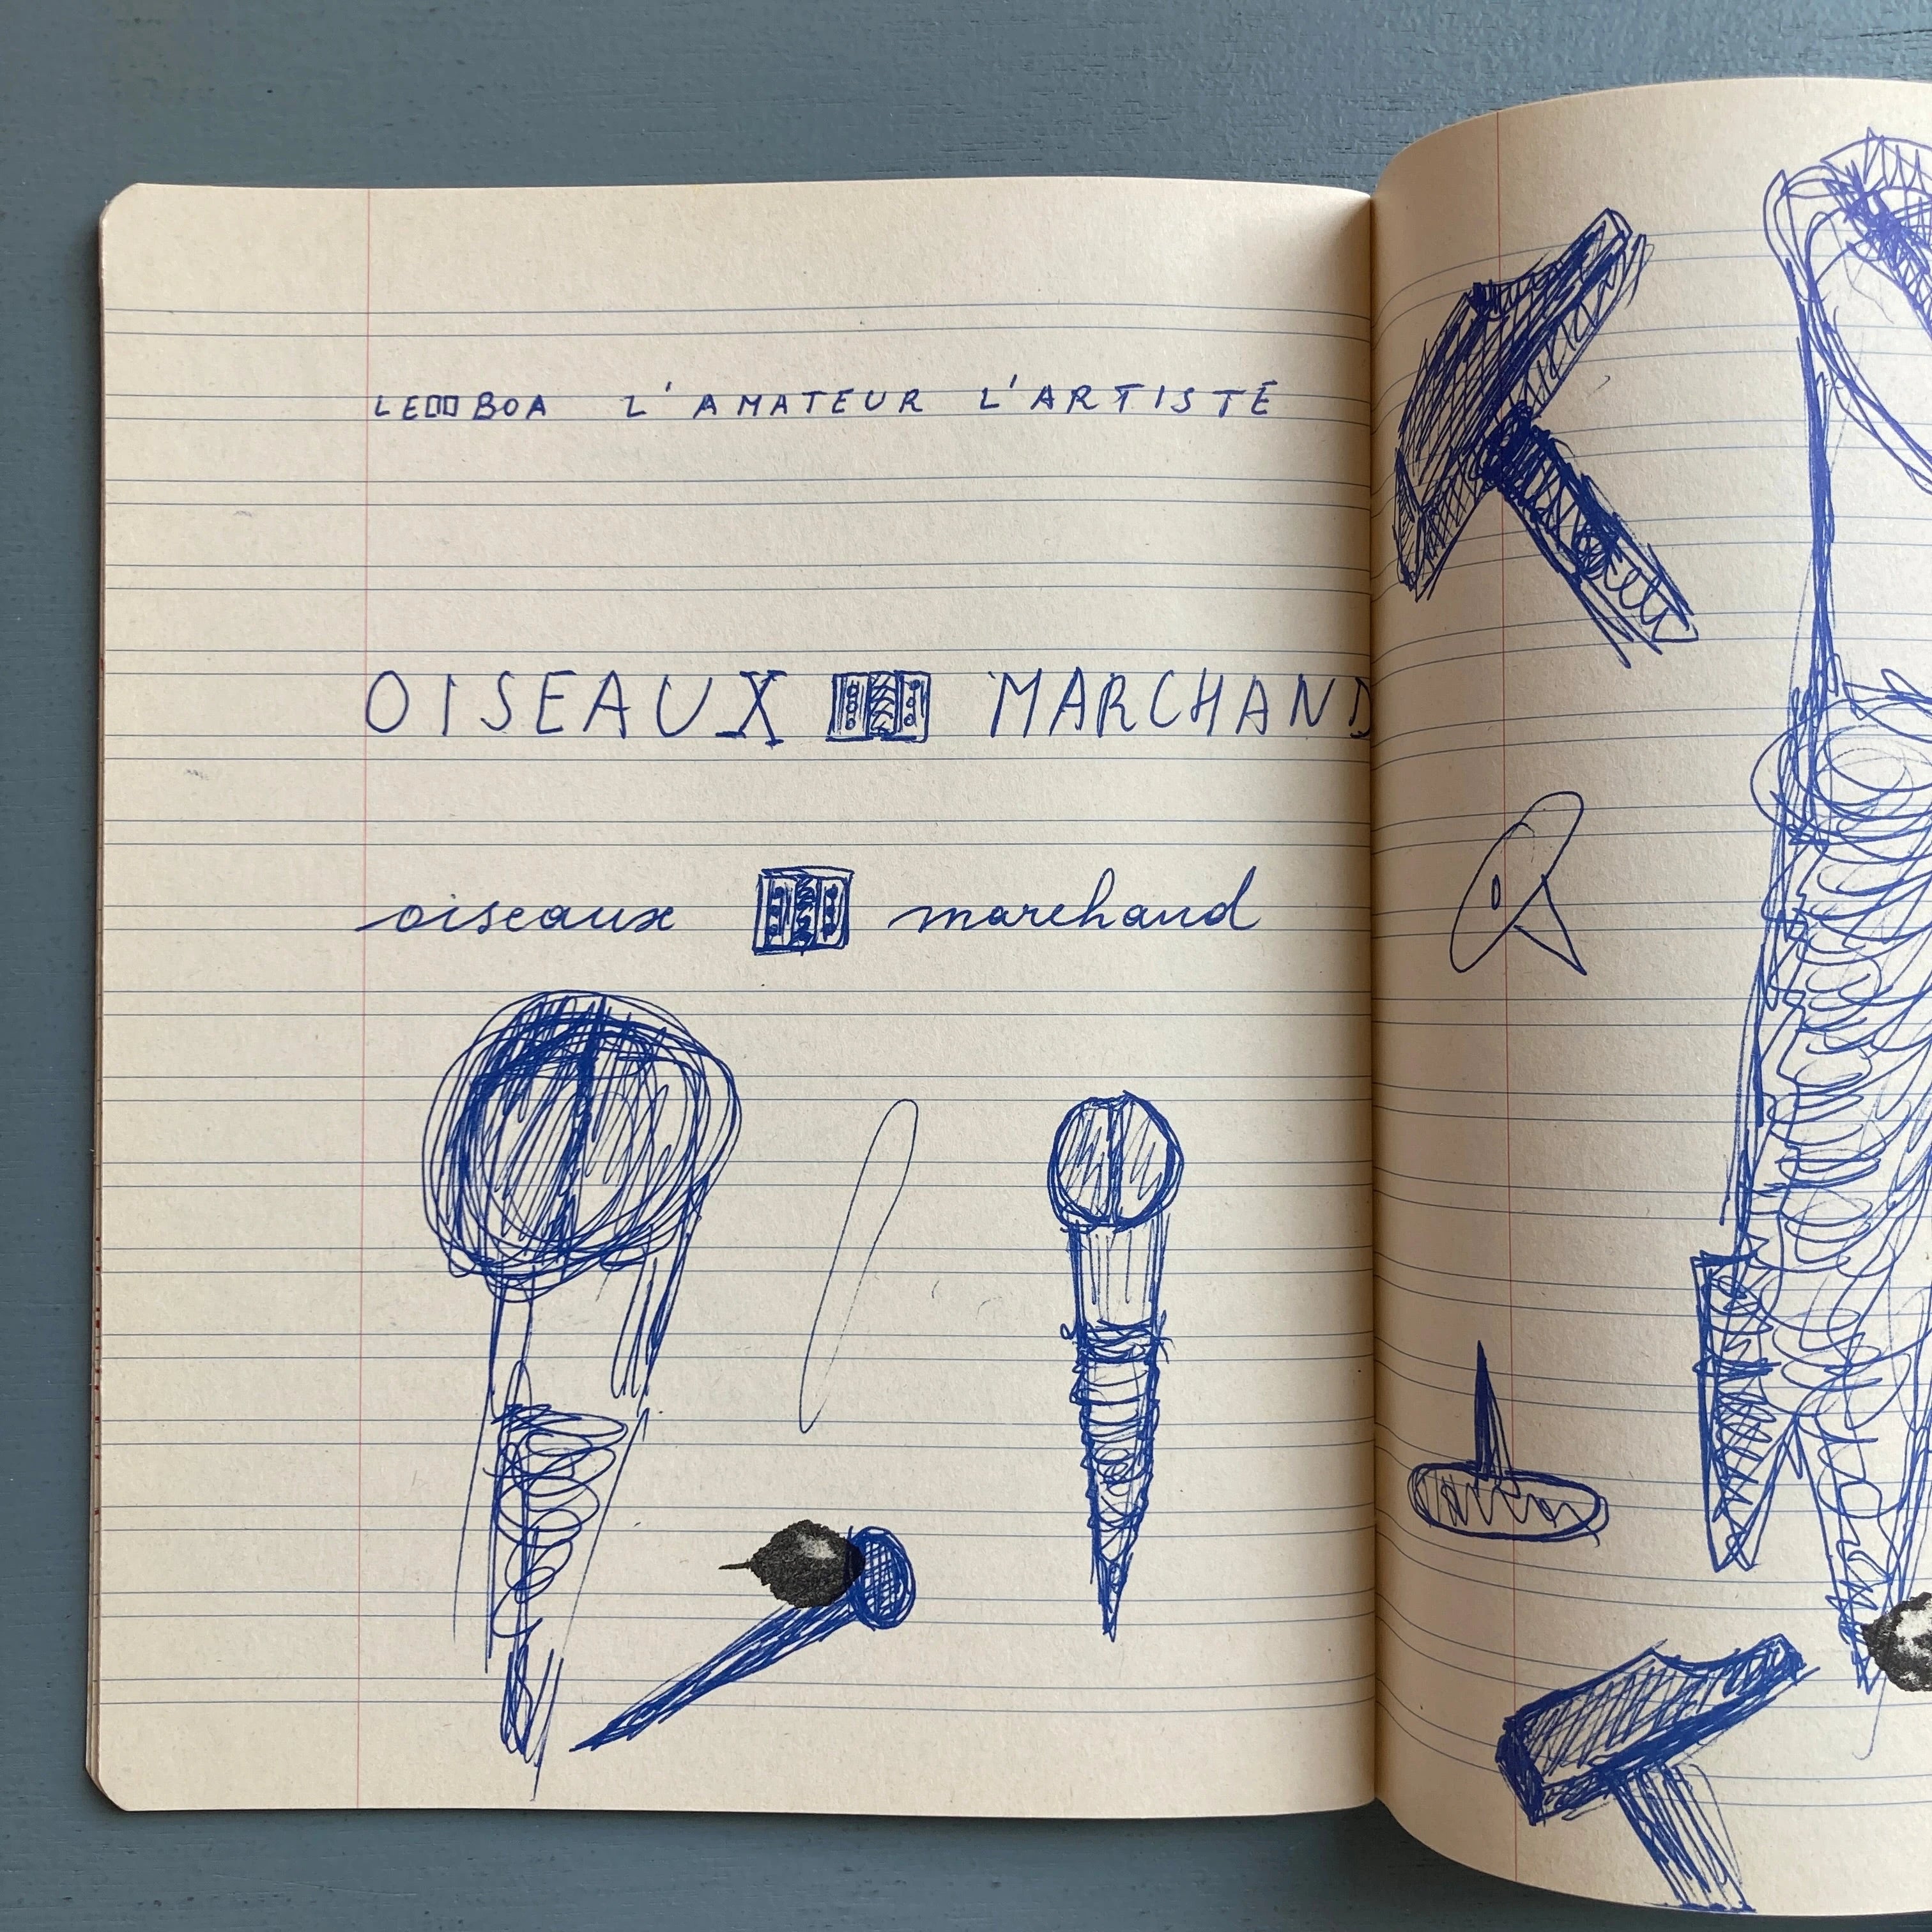 LE▯▯BOA L'AMATEUR L'ARTISTE
OISEAUX MARCHAND
oiseaux marchand